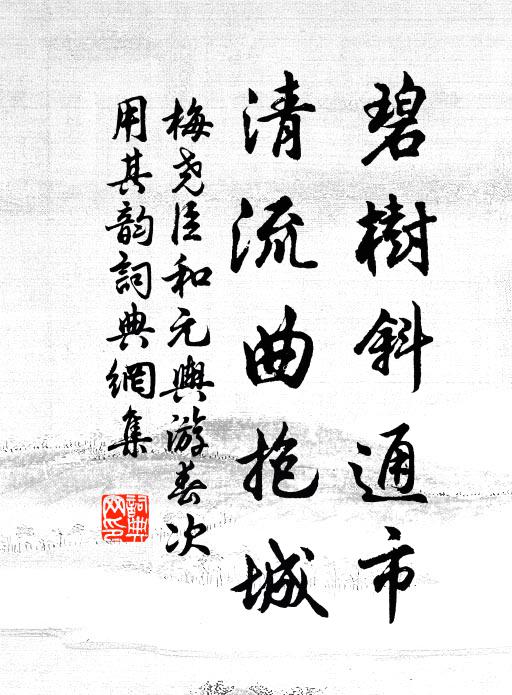 碧樹斜通市
清流曲抱城
梅尧臣和元輿游春次
用其韵詞典網集
詞典網印